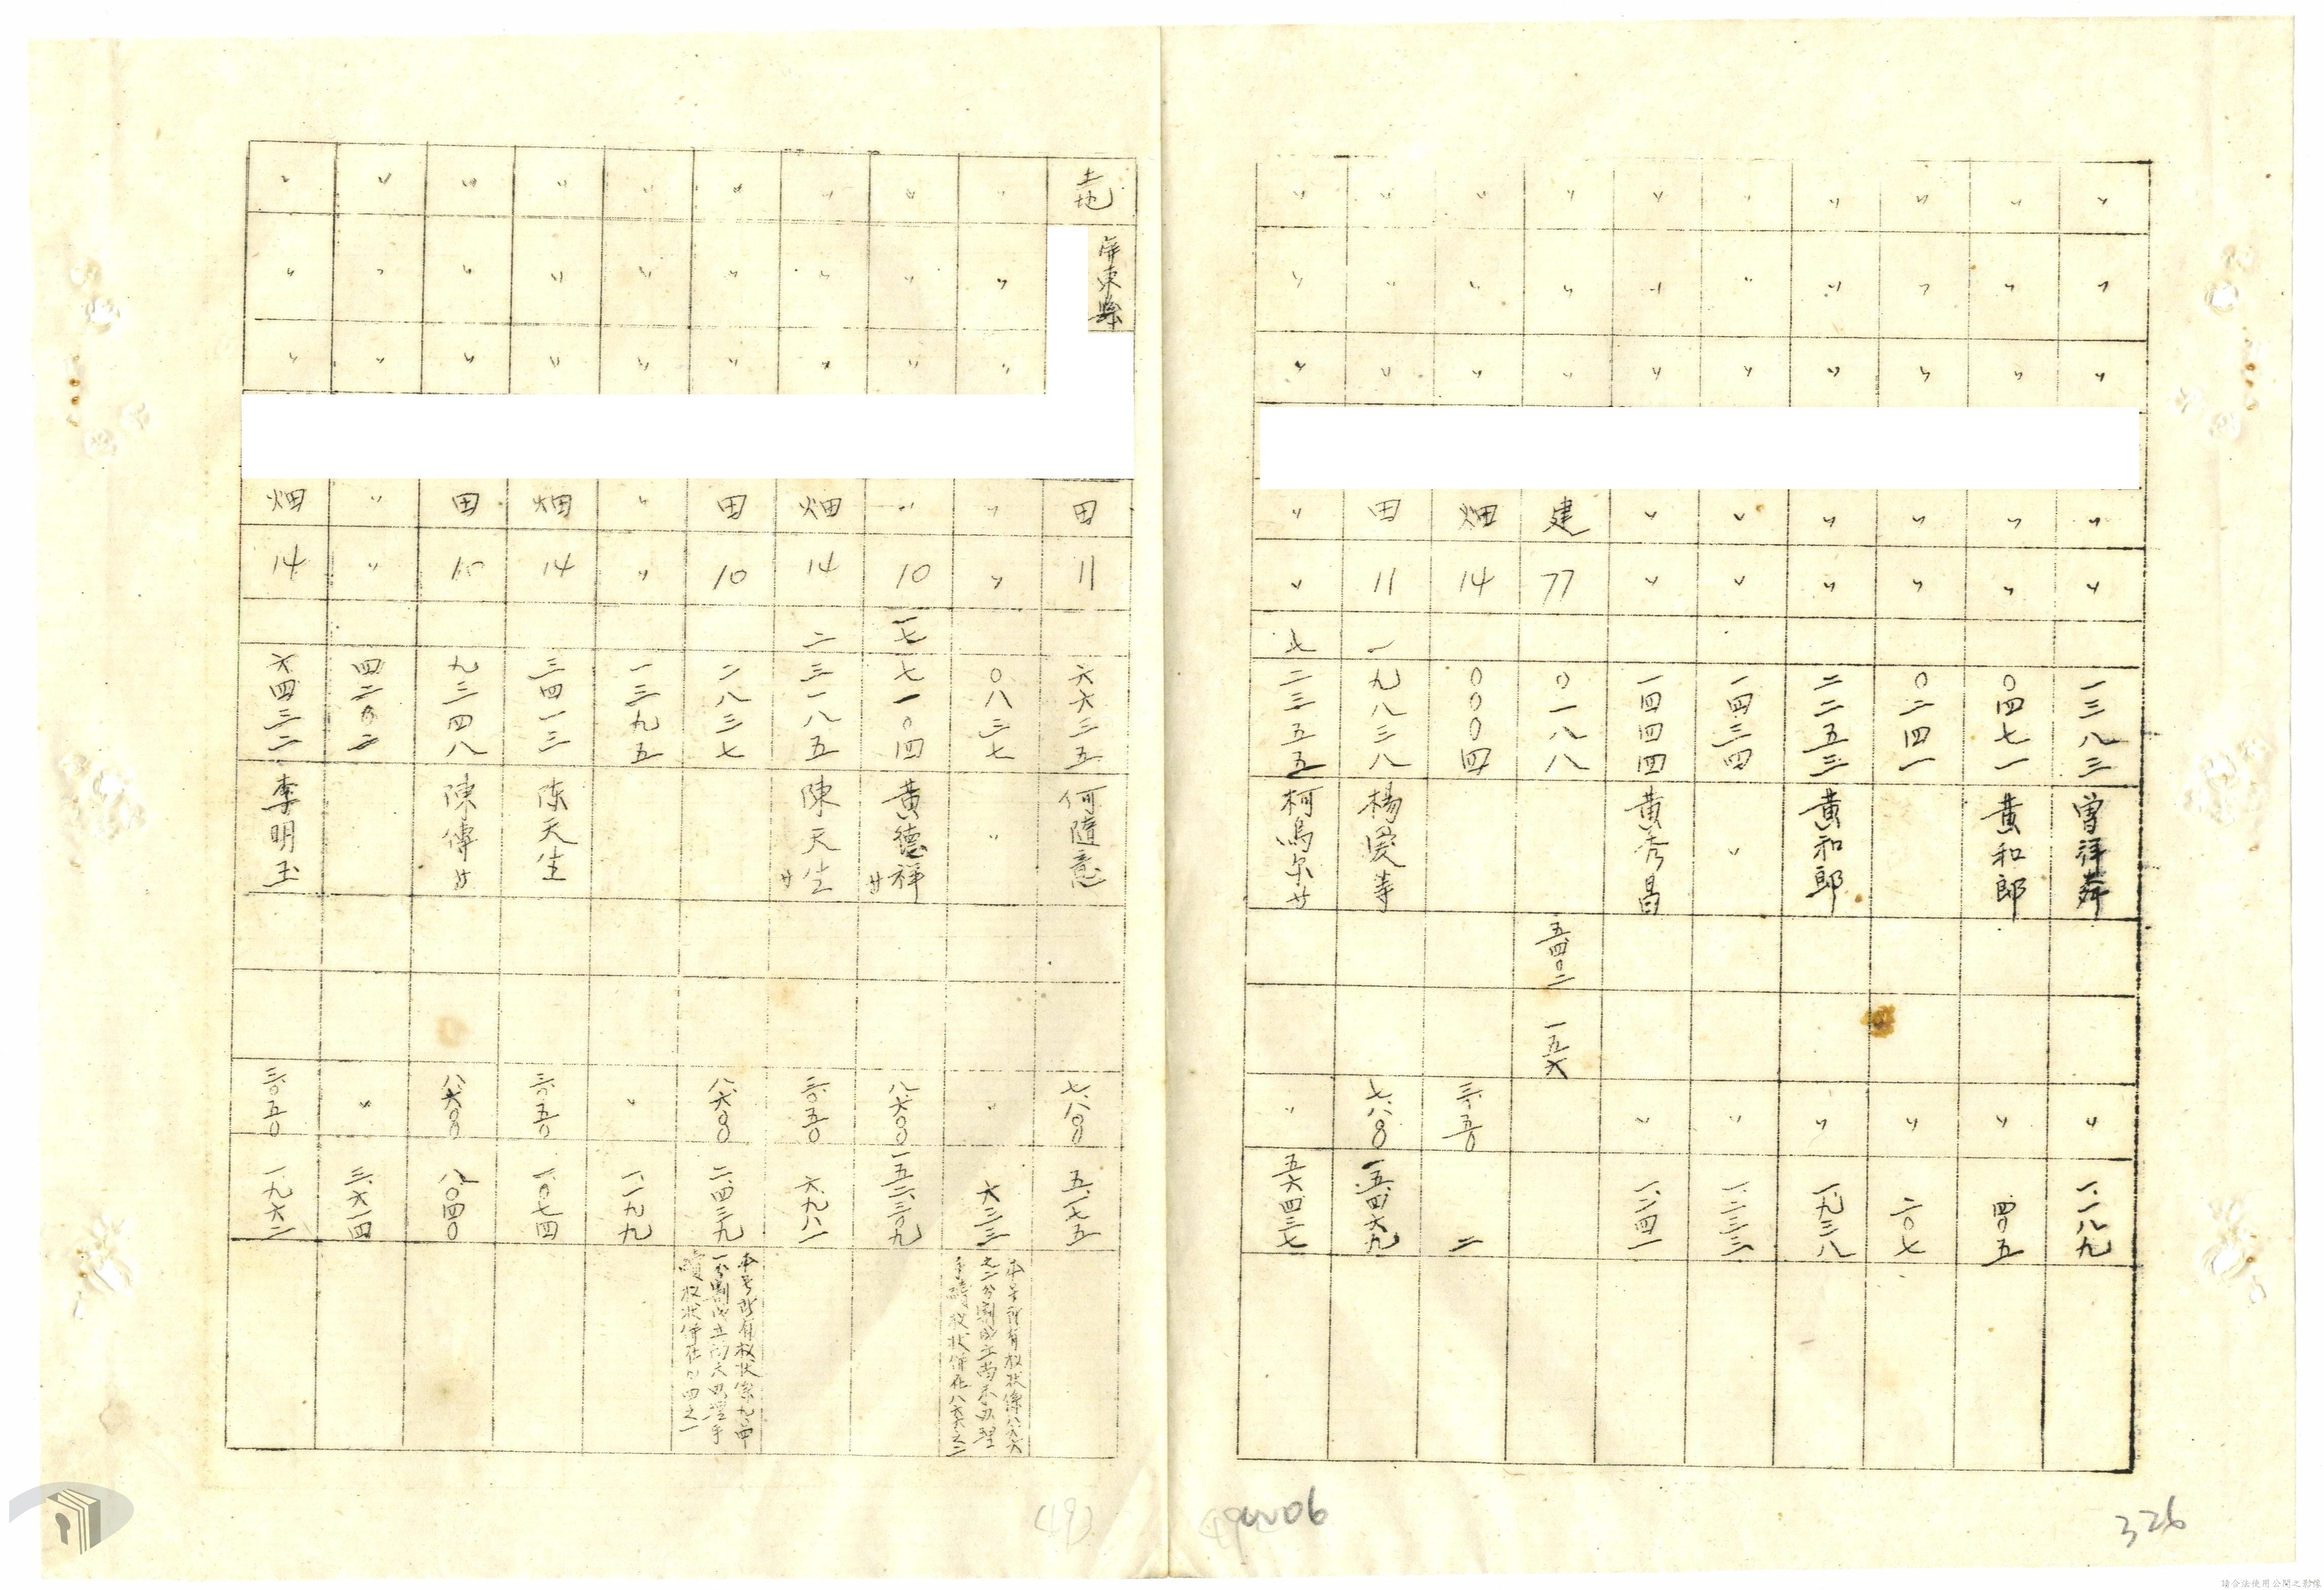 〃 〃 〃 〃 〃 一三八三 曾祥 〃 一.一八九
〃 〃 〃 〃 〃 〇四七一 黃和郎 〃 四〇五
〃 〃 〃 〃 〃 〇二四一 〃 二〇七
〃 〃 〃 〃 〃 二二五三 黃和郎 〃 一.九三八
〃 〃 〃 〃 〃 一四三四 〃 〃 一.二三三
〃 〃 〃 〃 〃 一四四四 黃秀昌 〃 一.二四一
〃 〃 〃 建 77 〇一八八 五四〇二 一五六
〃 〃 〃 畑 14 〇〇〇四 三.〇五〇 二
〃 〃 〃 田 11 一 九八三八 楊愛等 七.八〇〇 一五.四六九
〃 〃 〃 〃 〃 七 二三五五 柯烏尔廾 〃 五六四三七
326
06
土地 屏東縣 田 11 六六三五 何隨意 七.八〇〇 五.一七五
〃 〃 〃 〃 〃 〇八三七 〃 〃 六三三 本号所有权状係八六六
七二分割成立尚未办理
手續权状併在八六六之二
〃 〃 〃 〃 10 一七 七一〇四 黃德祥廾 八.六〇〇 一五二.三〇九
〃 〃 〃 畑 14 二 三一八五 陳天生廾 三.〇五〇 六.九八一
〃 〃 〃 田 10 二八三七 八.六〇〇 二.四三九 本号所有权状
〃 〃 〃 〃 〃 一三九五 〃 一.一九九
〃 〃 〃 畑 14 三四一三 陈天生 三.〇五〇 一.〇七四
〃 〃 〃 田 10 九三四八 陳傳廾 八.六〇〇 八.〇四〇
〃 〃 〃 〃 〃 四二〇二 〃 三.六一四
〃 〃 〃 畑 14 六四三二 李明玉 三.〇五〇 一.九六二
(49)
請合法使用公開之影像